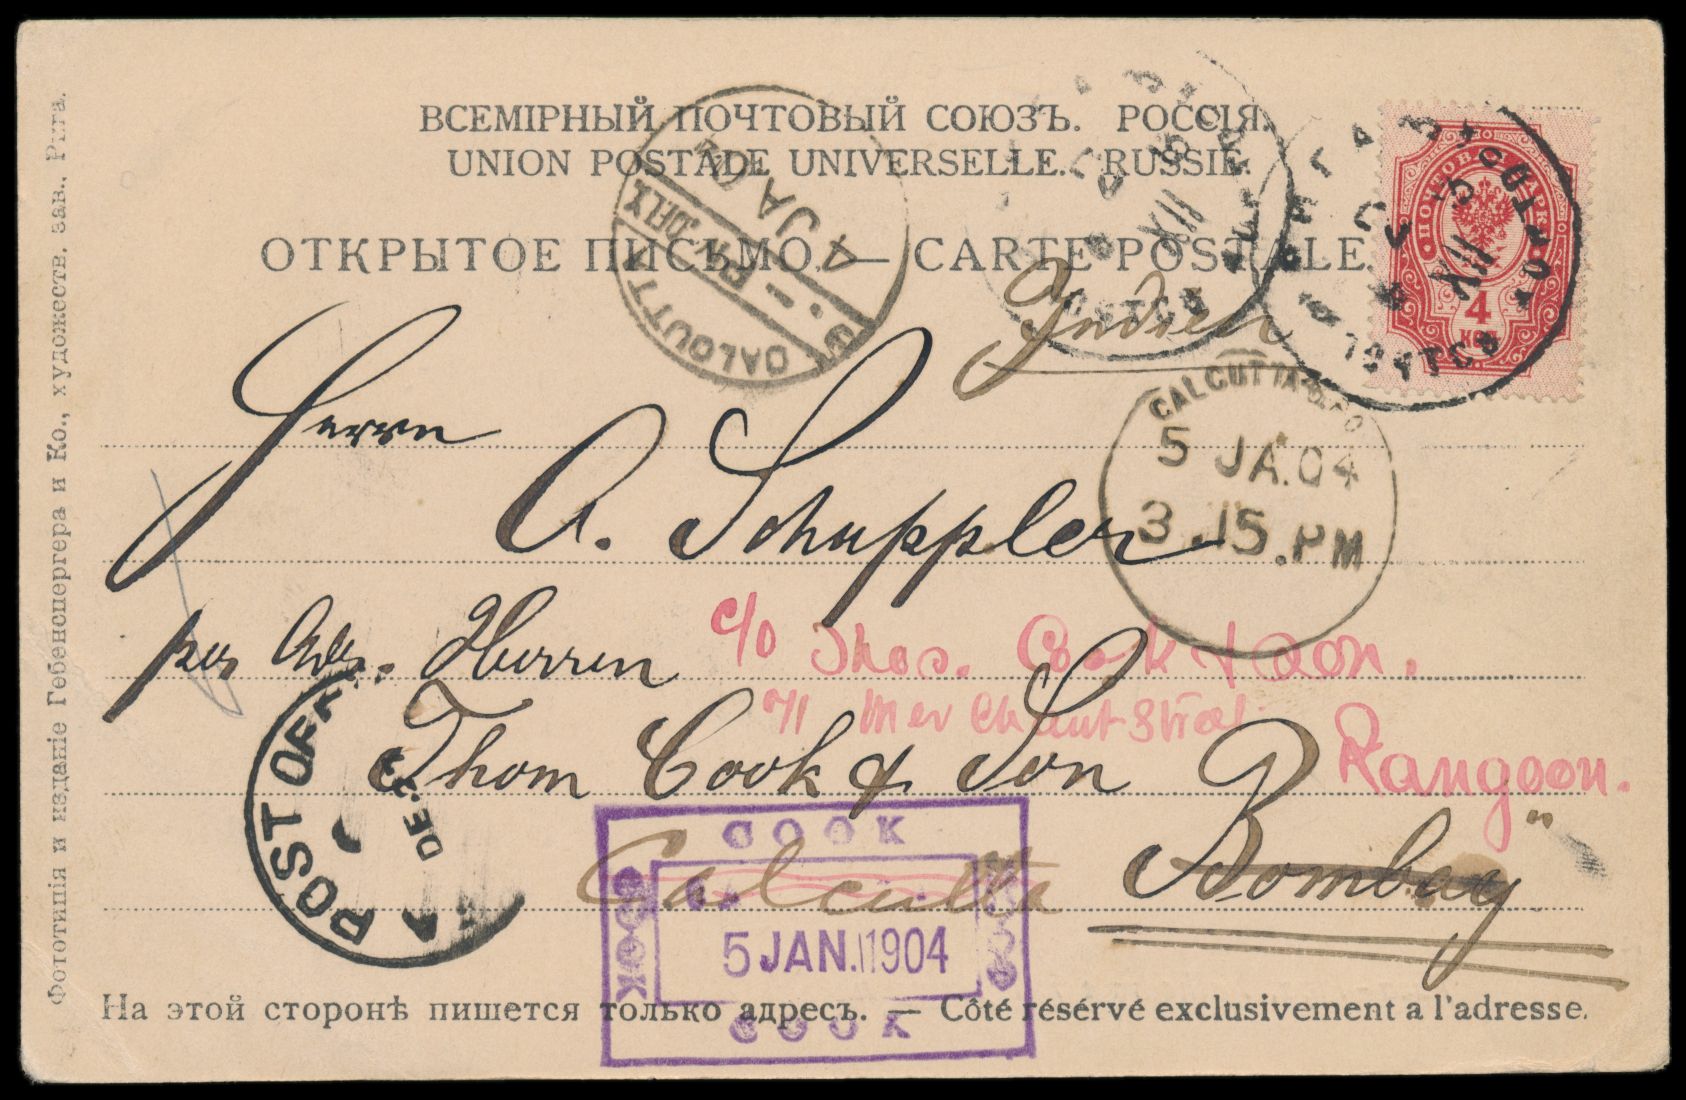 ВСЕМІРНЫЙ ПОЧТОВЫЙ СОЮЗЪ. РОССІЯ.
UNION POSTALE UNIVERSELLE. RUSSIE.
ОТКРЫТОЕ ПИСЬМО. — CARTE POSTALE.
ПОЧТОВАЯ МАРКА
4
КОП.
CALCUTTA
4 JA 04
9.-
Indien
CALCUTTA G.P.O
5 JA.04
3.15.PM
Herrn
A. Schuppler
per Adr. Herren
c/o Thos. Cook & Son.
71 Merchant Street
Rangoon.
Thom Cook & Son
Calcutta
Bombay
POST OFF
DE.
COOK
COOK
COOK
5 JAN. 1904
COOK
На этой сторонѣ пишется только адресъ. — Côté résérvé exclusivement a l'adresse.
Фототипія и изданіе Гебенспергера и Ко., художеств. зав., Рига.